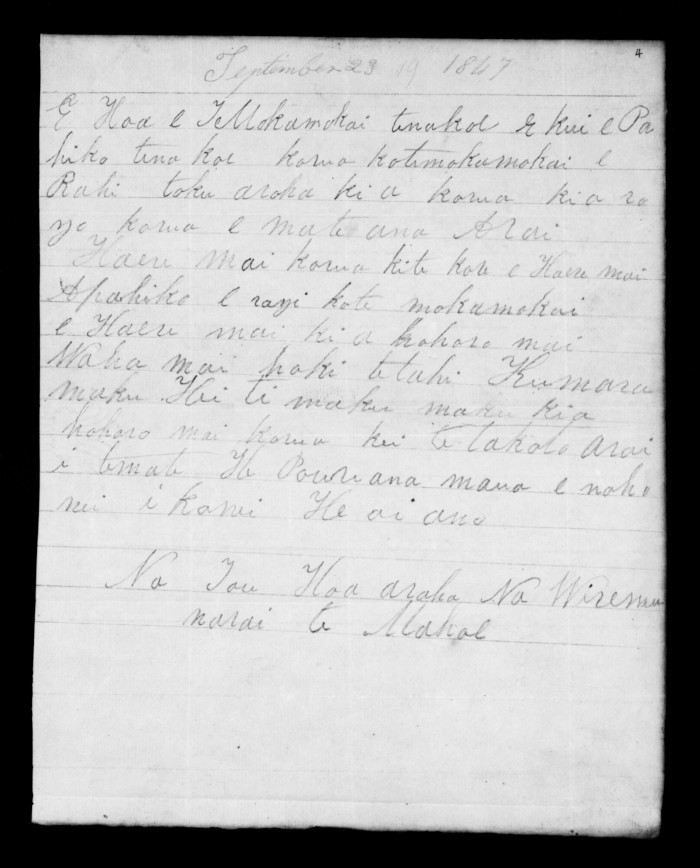 4
September 23 19 1847
E Hoa e TeMokamokai tenakoe E kui e Pa
hiko tena koe korua kotemokamokai e
Rahi toku aroha ki a korua ki a ro
ngo korua e mate ana Arai
Haere mai korua kite kore e Haere mai
Apahiko e rangi kote mokamokai
e Haere mai ki a hohoro mai
Waha mai hoki tetahi Kumara
maku Hei ti maku maku kia
hohoro mai korua kei te takoto Arai
i temate He Pouri ana maua e noho
nei i konei He oi ano
Na Tou Hoa aroha Na Wiremu
narai te Mahoe